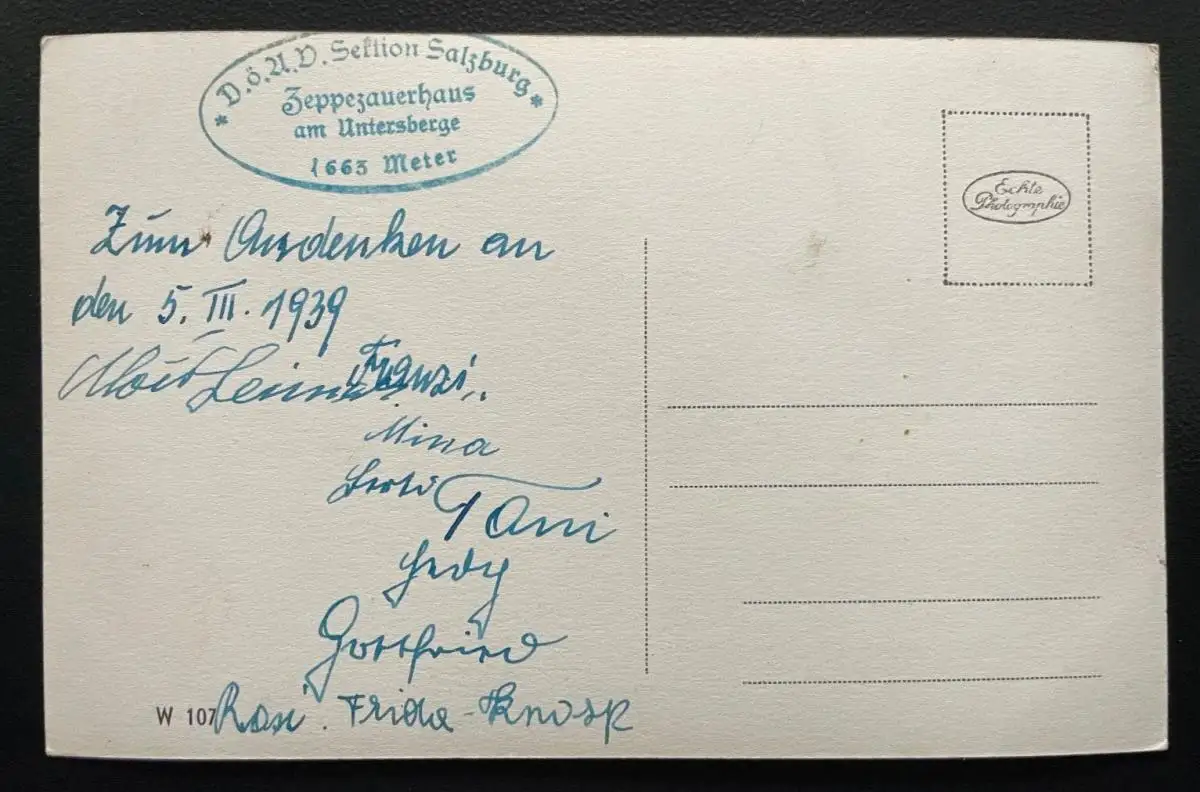 * D.ö.A.V. Sektion Salzburg *
Zeppezauerhaus
am Untersberge
1663 Meter
Echte
Photographie
Zum Andenken an
den 5. III. 1939
Franzi
Mina
Toni
Hedy
Gottfried
W 107
Rosi. Frida - Knosp